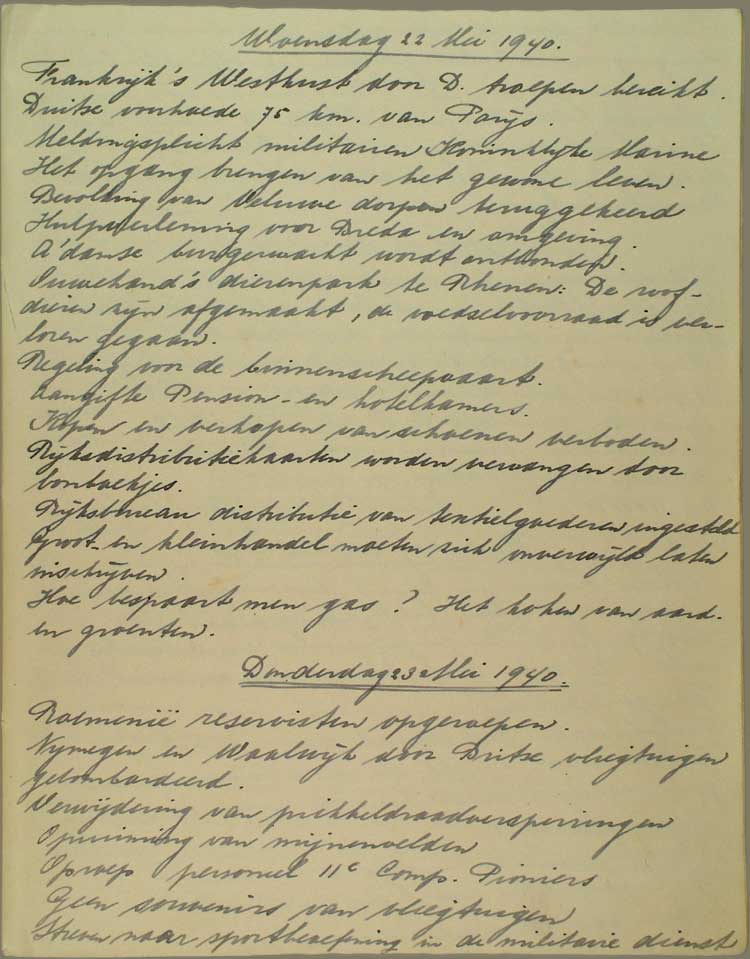 Woensdag 22 Mei 1940.
Frankrijk's Westkust door D. troepen bereikt.
Duitse voorhoede 75 km. van Parijs.
Meldingsplicht militairen Koninklijke Marine
Het opgang brengen van het gewone leven.
Bevolking van Veluwe dorpen teruggekeerd
Hulpverlening voor Breda en omgeving.
A'damse burgerwacht wordt ontbonden.
Ouwehand's dierenpark te Rhenen: De roof-
dieren zijn afgemaakt, de voedselvoorraad is ver-
loren gegaan.
Regeling voor de binnenscheepvaart.
Aangifte Pension- en hotelkamers.
Kopen en verkopen van schoenen verboden.
Rijksdistributiekaarten worden vervangen door
bonboekjes.
Rijksbureau distributie van textielgoederen ingesteld
Groot- en kleinhandel moeten zich onverwijld laten
inschrijven.
Hoe bespaart men gas? Het koken van aard-
en groenten.
Donderdag 23 Mei 1940.
Roemenië reservisten opgeroepen.
Nijmegen en Waalwijk door Britse vliegtuigen
gebombardeerd.
Verwijdering van prikkeldraadversperringen
Opruiming van mijnenvelden
Oproep personeel 11e Comp. Pioniers
Geen souvenirs van vliegtuigen
Streven naar sportbeoefening in de militaire dienst